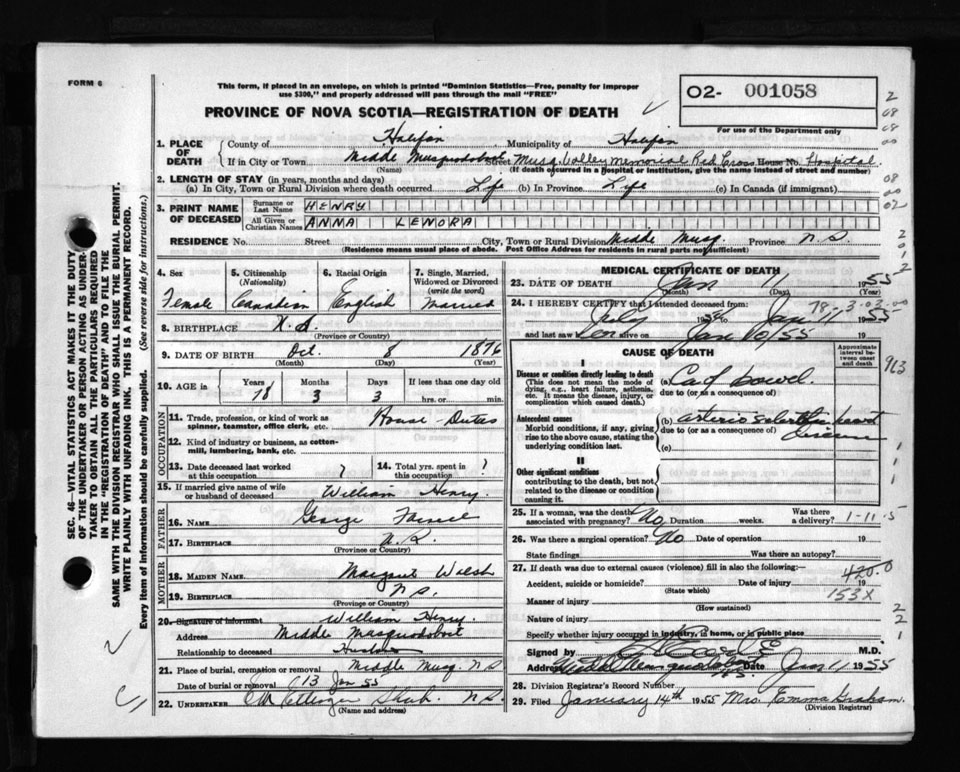 FORM 6
This form, if placed in an envelope, on which is printed "Dominion Statistics—Free, penalty for improper
use $300," and properly addressed will pass through the mail "FREE"
PROVINCE OF NOVA SCOTIA—REGISTRATION OF DEATH
O2- 001058
For use of the Department only
1. PLACE OF DEATH
County of Halifax Municipality of Halifax
If in City or Town Middle Musquodoboit Street Musq. Valley Memorial Red Cross House No. Hospital
(Name) (If death occurred in a hospital or institution, give the name instead of street and number)
2. LENGTH OF STAY (in years, months and days)
(a) In City, Town or Rural Division where death occurred Life (b) In Province Life (c) In Canada (if immigrant)
3. PRINT NAME OF DECEASED
Surname or Last Name HENRY
All Given or Christian Names ANNA LENORA
RESIDENCE No. Street City, Town or Rural Division Middle Musq. Province N.S.
(Residence means usual place of abode. Post Office Address for residents in rural parts not sufficient)
4. Sex Female
5. Citizenship (Nationality) Canadian
6. Racial Origin English
7. Single, Married, Widowed or Divorced (write the word) Married
8. BIRTHPLACE N.S.
(Province or Country)
9. DATE OF BIRTH Oct. 8 1876
(Month) (Day) (Year)
10. AGE in Years 78 Months 3 Days 3 If less than one day old
hrs. or min.
OCCUPATION
11. Trade, profession, or kind of work as
spinner, teamster, office clerk, etc. House-Duties
12. Kind of industry or business, as cotton-
mill, lumbering, bank, etc.
13. Date deceased last worked
at this occupation ?
14. Total yrs. spent in
this occupation ?
15. If married give name of wife
or husband of deceased William Henry.
FATHER
16. NAME George
17. BIRTHPLACE
(Province or Country)
MOTHER
18. MAIDEN NAME Margaret Welsh
19. BIRTHPLACE N.S.
(Province or Country)
20. Signature of informant William Henry.
Address Middle Musquodoboit
Relationship to deceased Husband
21. Place of burial, cremation or removal Middle Musq. N.S
Date of burial or removal 13 Jan 55
22. UNDERTAKER N.S.
(Name and address)
MEDICAL CERTIFICATE OF DEATH
23. DATE OF DEATH Jan 11 1955
(Month) (Day)
24. I HEREBY CERTIFY that I attended deceased from:
July 1954 to Jan 11 1955
and last saw her on Jan 10/55 19
78-3-03-00
CAUSE OF DEATH
Approximate interval between onset and death
I
Disease or condition directly leading to death
(This does not mean the mode of
dying, e.g., heart failure, asthenia,
etc. It means the disease, injury, or
complication which caused death.)
(a) Ca of bowel.
due to (or as a consequence of)
Antecedent causes
Morbid conditions, if any, giving
rise to the above cause, stating the
underlying condition last.
(b) arterio sclerotic heart
due to (or as a consequence of) disease
(c)
II
Other significant conditions
contributing to the death, but not
related to the disease or condition
causing it.
25. If a woman, was the death
associated with pregnancy? No Duration weeks. Was there
a delivery? 1-11-5
26. Was there a surgical operation? No Date of operation 19
State findings Was there an autopsy?
27. If death was due to external causes (violence) fill in also the following:—
420.0
Accident, suicide or homicide? Date of injury 19
(State which) 153X
Manner of injury
(How sustained)
Nature of injury
Specify whether injury occurred in industry, in home, or in public place
Signed by M.D.
Address Middle Musquodoboit N.S. Date Jan 11 1955
28. Division Registrar's Record Number
29. Filed January 14th 1955 Mrs. Emma Graham.
(Division Registrar)
SEC. 46—VITAL STATISTICS ACT MAKES IT THE DUTY
OF THE UNDERTAKER OR PERSON ACTING AS UNDER-
TAKER TO OBTAIN ALL THE PARTICULARS REQUIRED
IN THE "REGISTRATION OF DEATH" AND TO FILE THE
SAME WITH THE DIVISION REGISTRAR WHO SHALL ISSUE THE BURIAL PERMIT.
WRITE PLAINLY WITH UNFADING INK. THIS IS A PERMANENT RECORD.
Every item of information should be carefully supplied. (See reverse side for instructions.)